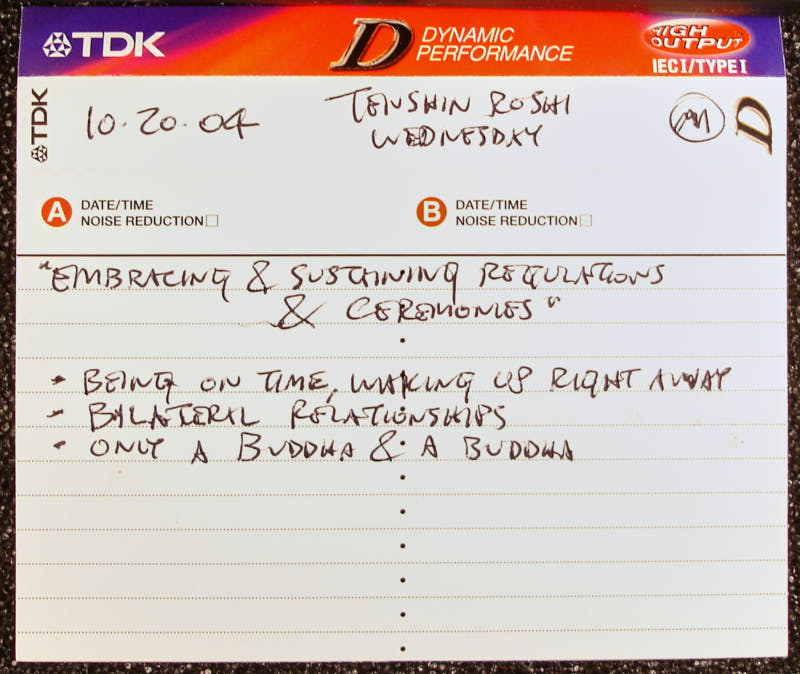 TDK
D DYNAMIC
PERFORMANCE
HIGH
OUTPUT
IEC I/TYPE I
TDK
10·20·04
TENSHIN ROSHI
WEDNESDAY
AM
D
A DATE/TIME
NOISE REDUCTION
B DATE/TIME
NOISE REDUCTION
"EMBRACING & SUSTAINING REGULATIONS
& CEREMONIES"
- BEING ON TIME, WAKING US RIGHT AWAY
- BILATERAL RELATIONSHIPS
- ONLY A BUDDHA & A BUDDHA